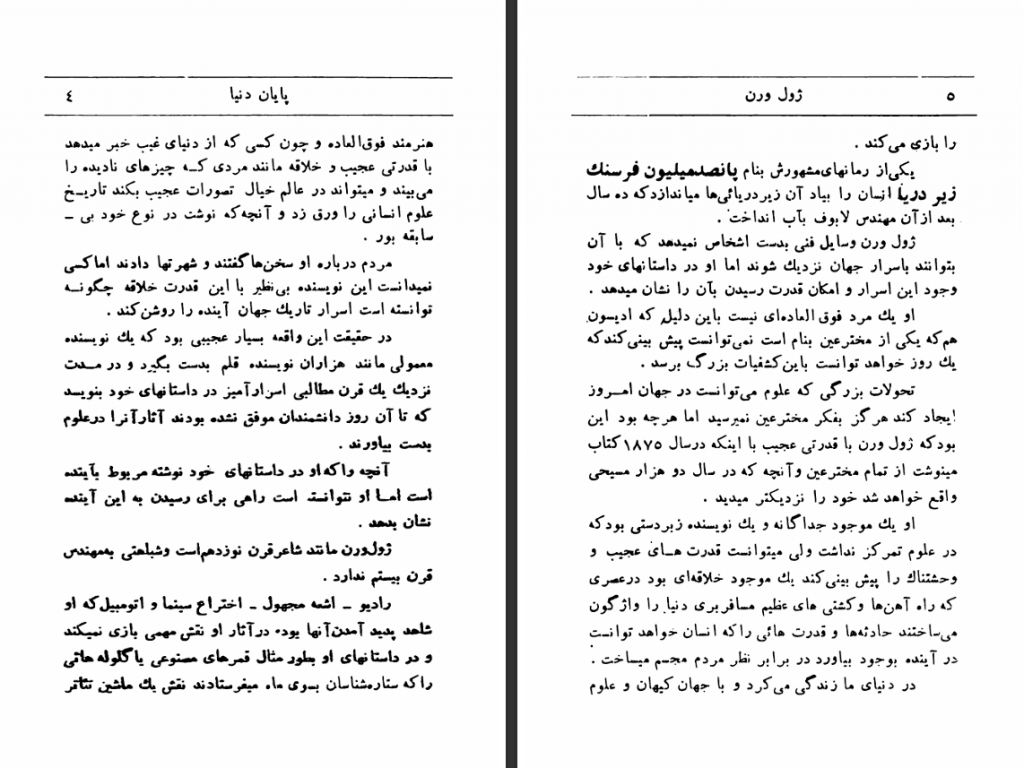 پایان دنیا ٤
هنرمند فوق‌العاده و چون کسی که از دنیای غیب خبر میدهد
با قدرتی عجیب و خلاقه مانند مردی کـه چیزهای نادیده را
می‌بیند و میتواند در عالم خیال تصورات عجیب بکند تاریخ
علوم انسانی را ورق زد و آنچه‌که نوشت در نوع خود بی ـ
سابقه بور .
مردم درباره او سخن‌ها گفتند و شهرتها دادند اما کسی
نمیدانست این نویسنده بی‌نظیر با این قدرت خلاقه چگونـه
توانسته است اسرار تاریك جهان آینده را روشن‌کند .
در حقیقت این واقعه بسیار عجیبی بود که یك نویسنده
معمولی مانند هزاران نویسنده قلم بدست بگیرد و در مـدت
نزدیك یك قرن مطالبی اسرارآمیز در داستانهای خود بنویسد
که تا آن روز دانشمندان موفق نشده بودند آثارآنرا درعلوم
بدست بیاورند .
آنچه راکه‌او در داستانهای خود نوشته مربوط بآینده
است امـا او نتوانسته است راهی برای رسیدن به این آینده
نشان بدهد .
ژول‌ورن مانند شاعرقرن نوزدهم‌است وشباهتی به‌مهندس
قرن بیستم ندارد .
رادیو ـ اشعه مجهول ـ اختراع سینما و اتومبیل‌که او
شاهد پدید آمدن‌آنها بوده درآثار او نقش مهمی بازی نمیکند
و در داستانهای او بطور مثال قمرهای مصنوعی یا گلوله هائی
راکه ستاره‌شناسان بـوی ماه میفرستادند نقش یك ماشین تئاتر
ژول ورن ٥
را بازی می‌کند .
یکی‌از رمانهای‌مشهورش بنام پانصدمیلیون فرسنك
زیر دریا انسان را بیاد آن زیردریائی‌ها میاندازدکه ده سال
بعد ازآن مهندس لابوف بآب انداخت .
ژول ورن وسایل فنی بدست اشخاص نمیدهد که با آن
بتوانند باسرار جهان نزدیك شوند اما او در داستانهای خود
وجود این اسرار و امکان قدرت رسیدن بآن را نشان میدهد .
او یك مرد فوق العاده‌ای نیست باین دلیل که ادیسون
هم‌که یکی از مخترعین بنام است نمی‌توانست پیش بینی‌کندکه
یك روز خواهد توانست باین‌کشفیات بزرگ برسد .
تحولات بزرگی که علوم می‌توانست در جهان امـروز
ایجاد کند هرگز بفکر مخترعین نمیرسید اما هرچه بود این
بودکه ژول ورن با قدرتی عجیب با اینکه درسال ١٨٧٥ کتاب
مینوشت از تمام مخترعین وآنچه که در سال دو هزار مسیحی
واقع خواهد شد خود را نزدیکتر میدید .
او یك موجود جداگانه و یك نویسنده زبردستی بودکه
در علوم تمرکز نداشت ولی میتوانست قدرت هـای عجیب و
وحشتناك را پیش بینی‌کند یك موجود خلاقه‌ای بود درعصری
که راه آهن‌ها وکشتی های عظیم مسافربری دنیا را واژگون
می‌ساختند حادثه‌ها و قدرت هائی راکه انسان خواهد توانست
در آینده بوجود بیاورد در برابر نظر مردم مجسم میساخت .
در دنیای ما زندگی می‌کرد و با جهان کیهان و علوم